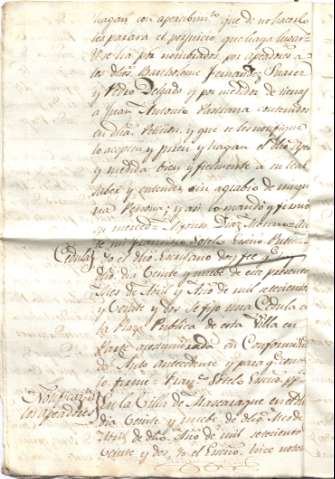 hagan con apercibim.to que de no hacerlo
les parara el perjuicio que haya lugar
Y se ha por nombrados por apreciadores a
los dhos Bartholome Fernandez Suarez
y Pedro Delgado y por medidor de tierras
a Juan Antonio contenidos
en dha Peticion, y que se les notifique
lo acepten y juren y hagan el dho
y medida bien y fielmente a su leal
saber y entender sin agravio de ningu
na Persona; y asi lo mando y firmo
su merced Alonso Diaz
Cedula
Yo el dho Escribano doy fee que
dho dia Veinte y nuebe de este presente
Mes de Abril y Año de mil setecientos
y Veinte y dos se fijo una Cedula a
la Plaza Publica de esta Villa en
Parte acostumbrada en Conformidad
de Auto antecedente y para q conste
lo firmé
Notificacion
a los apreciadores
En la Villa de Mascaraque en dho
dia Veinte y nuebe de dho Mes de
Abril de dho Año de mil setecientos
Veinte y dos, Yo el Essno. hice notorio